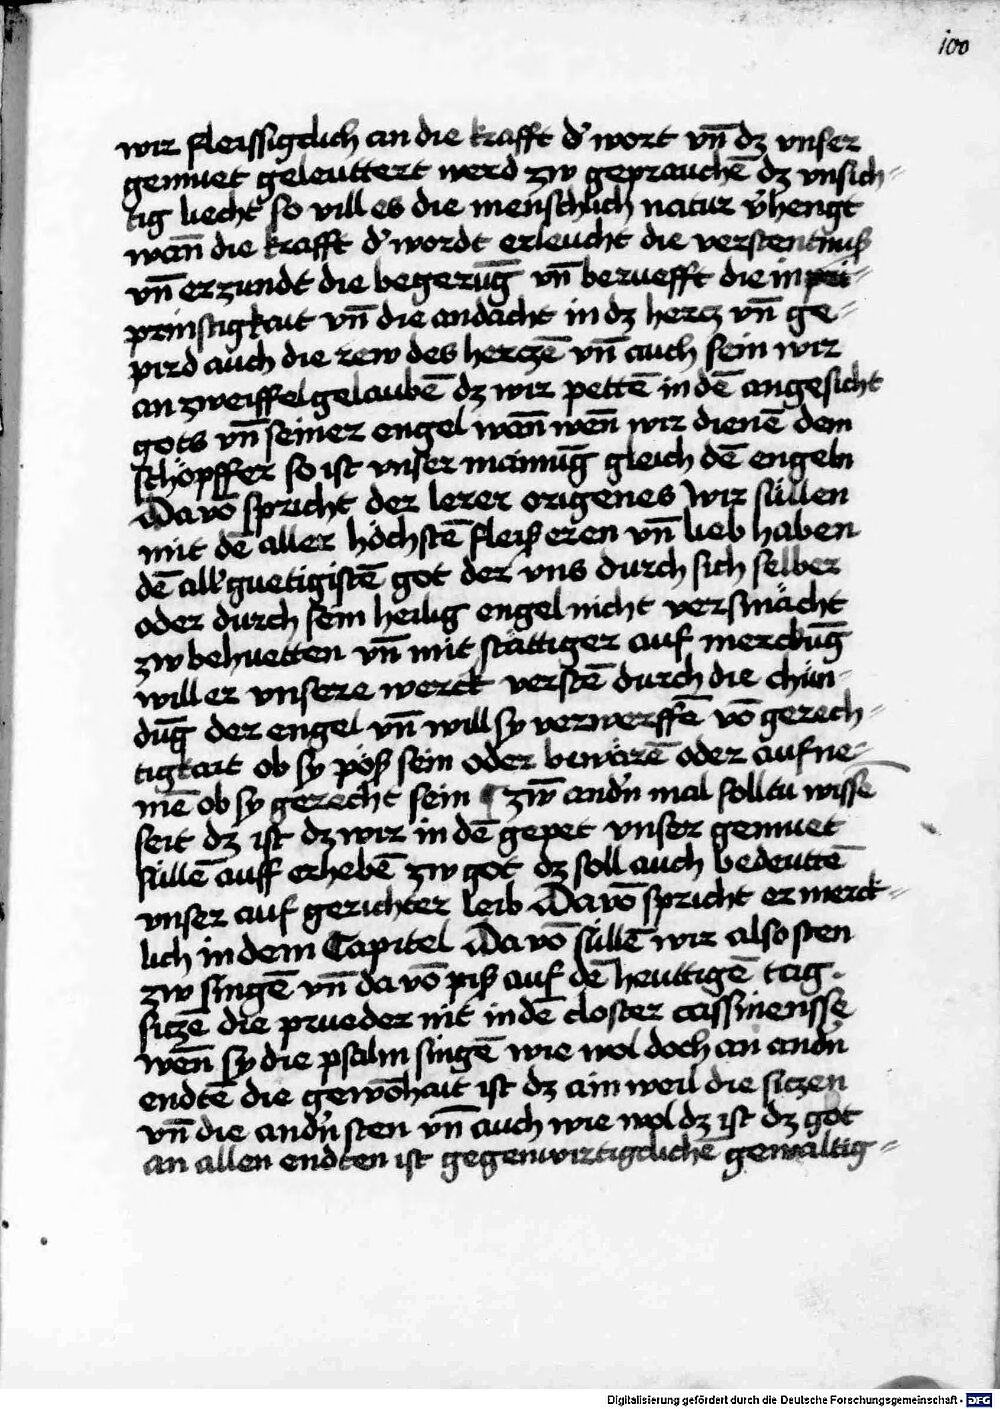 100
wir fleissigclich an die krafft d' wort vn̄ dz vnser
gemuet geleuttert werd zw geprauchē dz vnsich=
tig liecht so vill es die menschlich natur v'hengt
wan̄ die krafft d' wordt erleucht die verstentnuß
vn̄ erzundt die begerūg vn̄ beruefft die in
prinstigkait vn̄ die andacht in dz hercz vn̄ ge=
pird auch die rew des herczē vn̄ auch sein wir
an zweiffel gelaubē dz wir pettē in dē angesicht
gots vn̄ seiner engel wan̄ wen̄ wir dienē dem
schöpffer so ist vnser mainūg gleich dē engeln
Da vō spricht der lerer origenes wir süllen
mit dē aller höchstē fleiß eren vn̄ lieb haben
dē all'guetigistē got der vns durch sich selber
oder durch sein heilig engel nicht versmächt
zw behuetten vn̄ mit stättiger auf merckūg
will er vnsere werck verstē durch die chün=
dūg der engel vn̄ will sy verwerffē vō gerech=
tigkait ob sy pöß sein oder bewärē oder auf ne=
mē ob sy gerecht sein ¶ zw̄ and'n mal solltu wissē
seit dz ist dz wir in dē gepet vnser gemuet
süllē auff erhebē zw got dz soll auch bedeuttē
vnser auf gerichter leib Da vō spricht er merck=
lich in dem Capitel Da vō süllē wir also sten
zw singē vn̄ da vō piß auf dē heuttigē tag
siczē die prueder nit in dē closter cassinensse
wen̄ sy die psalm singē wie wol doch an and'n
endtē die gewōhait ist dz ain weil die siczen
vn̄ die and'n sten vn̄ auch wie wol dz ist dz got
an allen endten ist gegenwirtigclichē gewaltig=
Digitalisierung gefördert durch die Deutsche Forschungsgemeinschaft - DFG